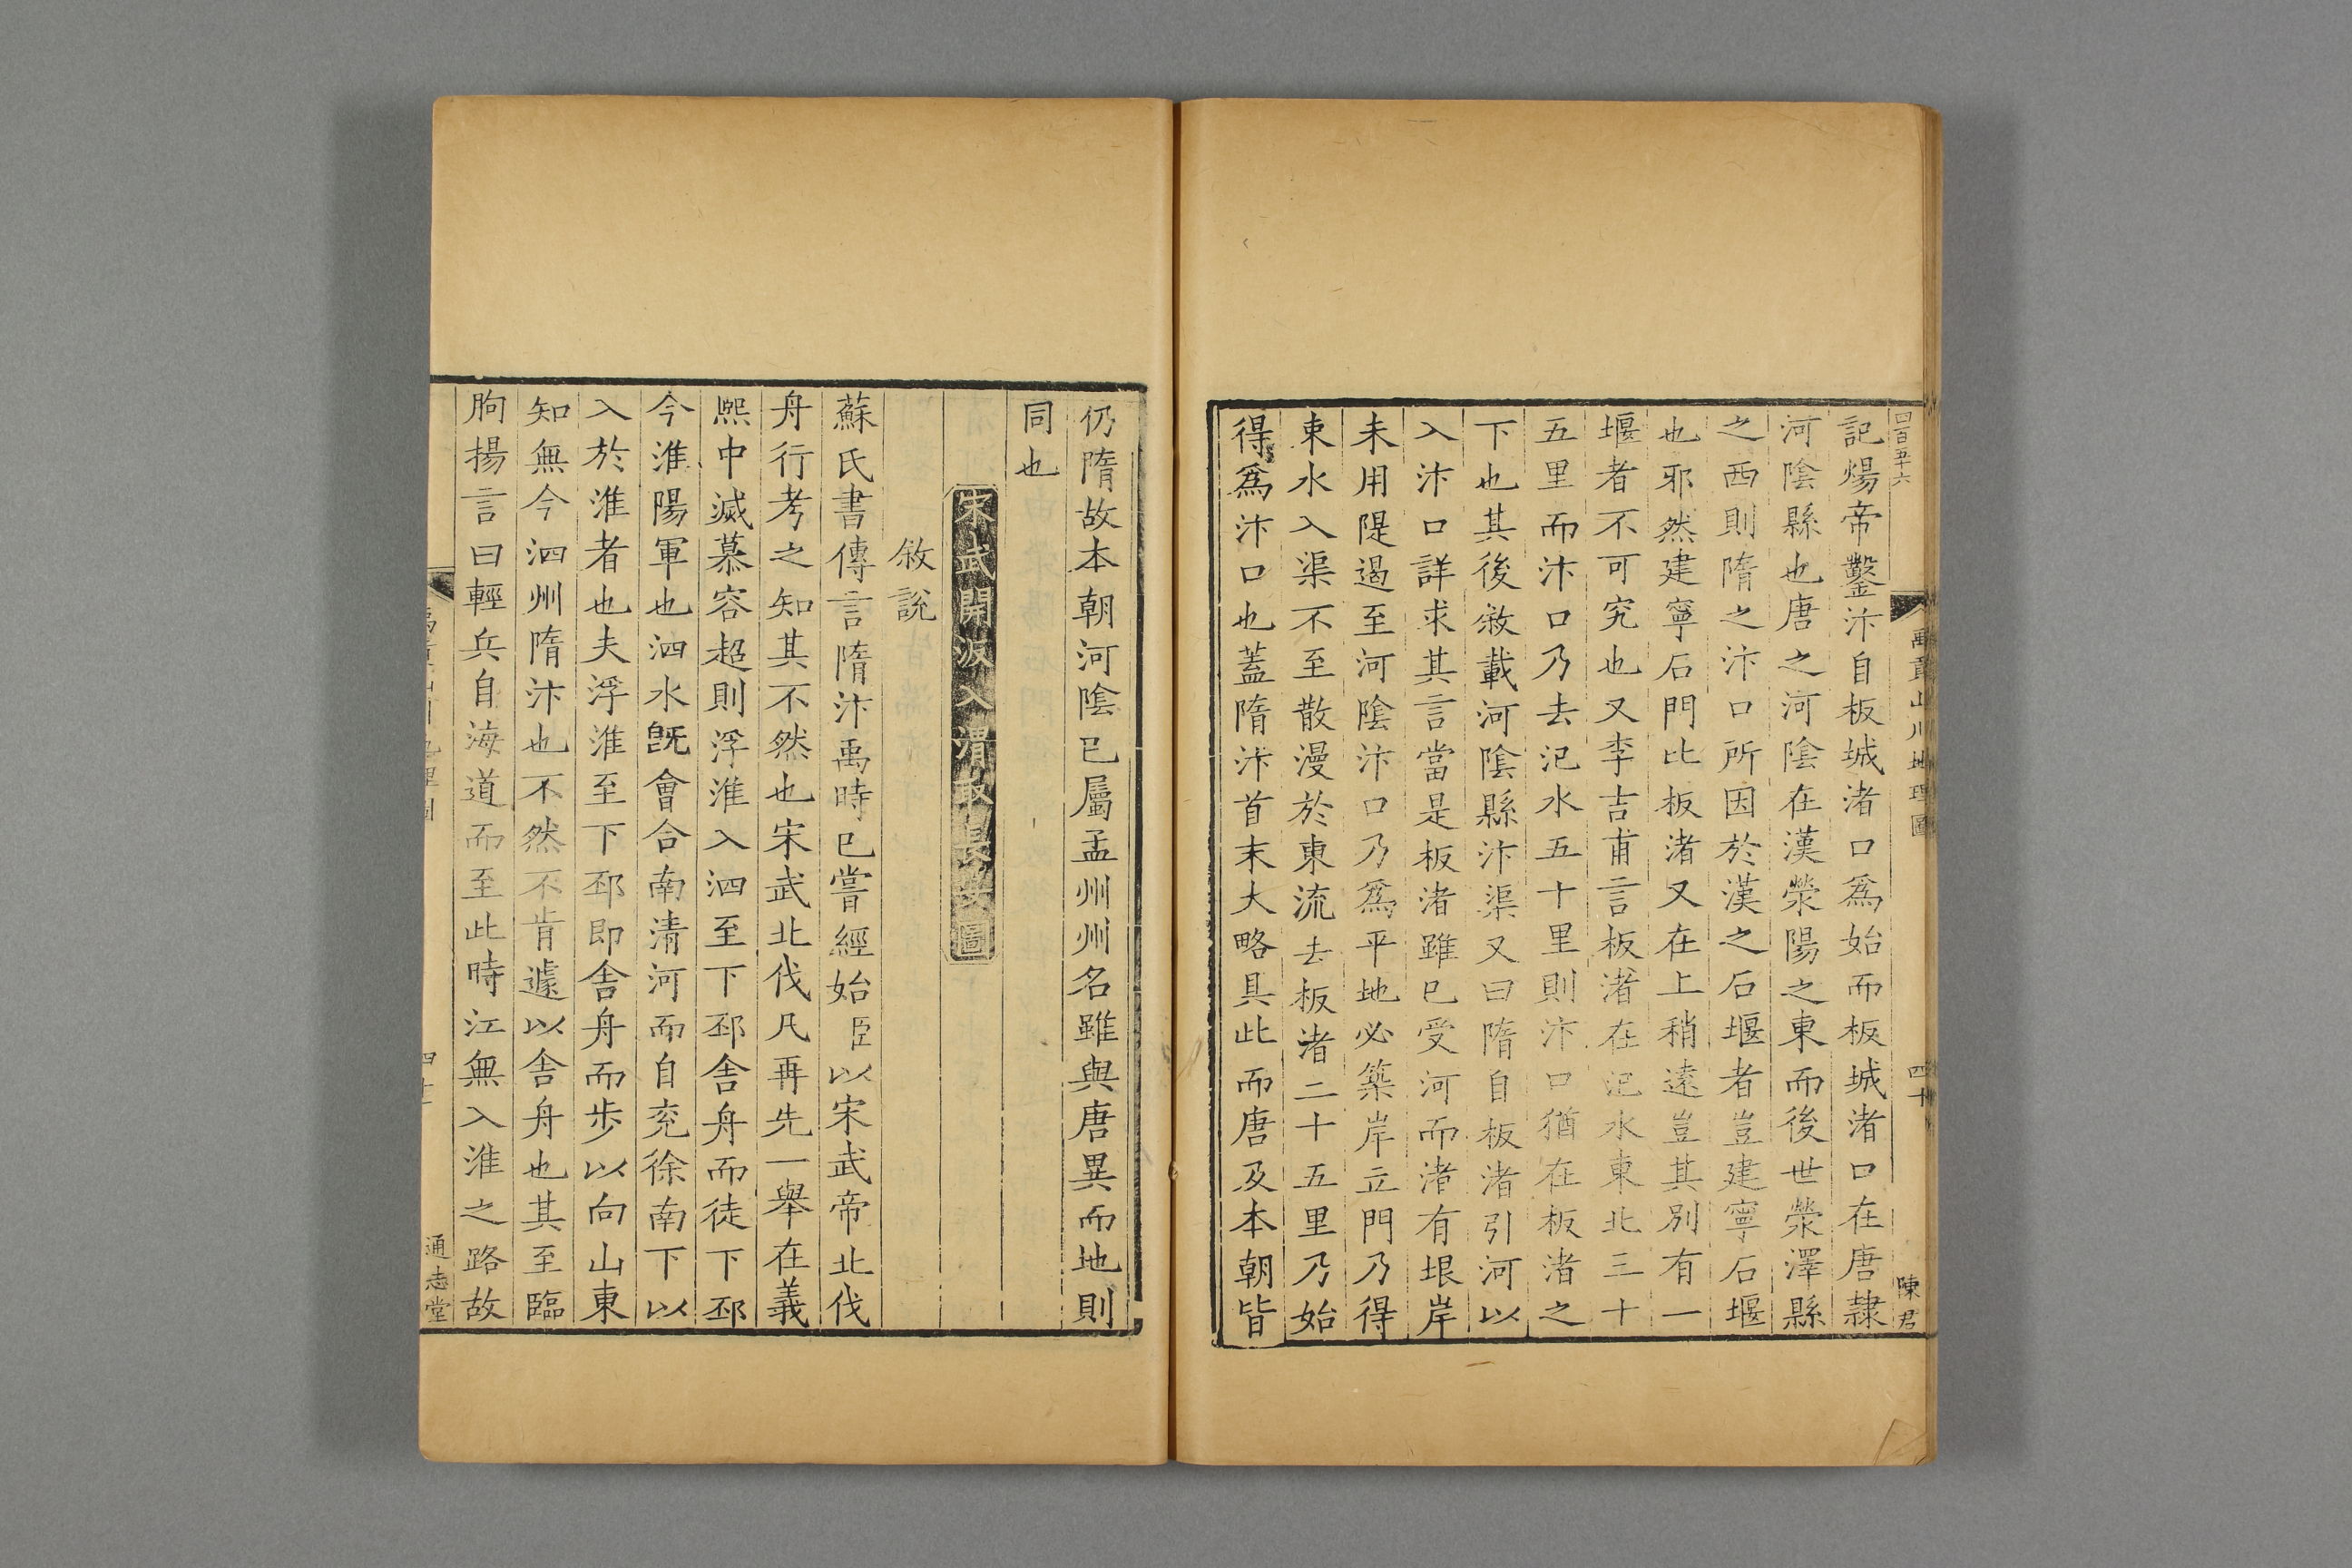 四百五十六
禹貢山川地理圖
四十
陳君
記煬帝鑿汴自板城渚口爲始而板城渚口在唐隷
河陰縣也唐之河陰在漢滎陽之東而後世滎澤縣
之西則隋之汴口所因於漢之石堰者豈建寧石堰
也邪然建寧石門比板渚又在上稍遠豈其別有一
堰者不可究也又李吉甫言板渚在汜水東北三十
五里而汴口乃去汜水五十里則汴口猶在板渚之
下也其後敘載河陰縣汴渠又曰隋自板渚引河以
入汴口詳求其言當是板渚雖已受河而渚有垠岸
未用隄遏至河陰汴口乃爲平地必築岸立門乃得
東水入渠不至散漫於東流去板渚二十五里乃始
得爲汴口也蓋隋汴首末大略具此而唐及本朝皆
仍隋故本朝河陰已屬孟州州名雖與唐異而地則
同也
宋武開汳入渭取長安圖
敘說
蘇氏書傳言隋汴禹時已嘗經始臣以宋武帝北伐
舟行考之知其不然也宋武北伐凡再先一舉在義
熙中滅慕容超則浮淮入泗至下邳舍舟而徒下邳
今淮陽軍也泗水旣會合南清河而自兖徐南下以
入於淮者也夫浮淮至下邳即舍舟而步以向山東
知無今泗州隋汴也不然不肯遽以舍舟也其至臨
朐揚言曰輕兵自海道而至此時江無入淮之路故
通志堂